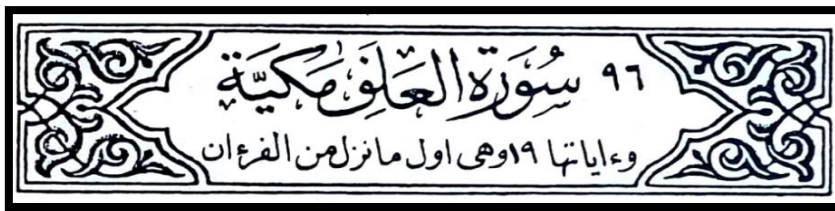 ٩٦ سُورَةُ العَلَقِ مَكِيَّة
وءاياتها ١٩ وهى اول ما نزل من القرءان